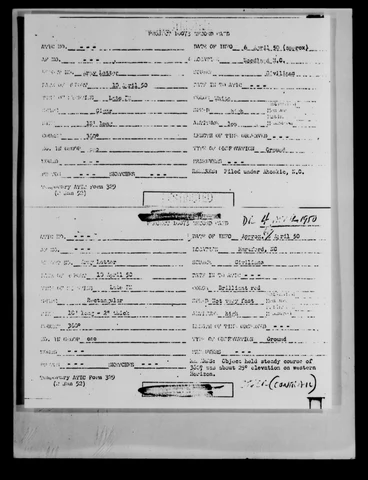 PROJECT 10073 RECORD CARD
ATIC NO. - - - DATE OF INFO 4 April 50 (approx)
AF NO. - - - LOCATION Woodland N.C.
REPORT NO. Army Letter SOURCE Civilians
DATE OF REPORT 10 April 50 DATE IN TO ATIC - - -
TIME OF SIGHTING Late PM COLOR White
SHAPE Cigar SPEED high
SIZE 10' long ALTITUDE low
COURSE 360° LENGTH OF TIME OBSERVED - - -
NO. IN GROUP one TYPE OF OBSERVATION Ground
SOUND - - - MANEUVERS - - -
PHOTOS - - - SKETCHES - - - REMARKS: Filed under Ahoskie, N.C.
Temporary ATIC Form 329
(2 Jan 52)
PROJECT 10073 RECORD CARD
1950
ATIC NO. - - - DATE OF INFO Approx. April 50
AF NO. - - - LOCATION NC
REPORT NO. Army Letter SOURCE Civilians
DATE OF REPORT 10 April 50 DATE IN TO ATIC - - -
TIME OF SIGHTING Late PM COLOR Brilliant red
SHAPE Rectangular SPEED Not very fast
SIZE 10' long - 2" thick ALTITUDE high
COURSE 360° LENGTH OF TIME OBSERVED - - -
NO. IN GROUP one TYPE OF OBSERVATION Ground
SOUND - - - MANEUVERS - - -
PHOTOS - - - SKETCHES - - - REMARKS: Object held steady course of
was about 25° elevation on western
Horizon.
Temporary ATIC Form 329
(2 Jan 52)